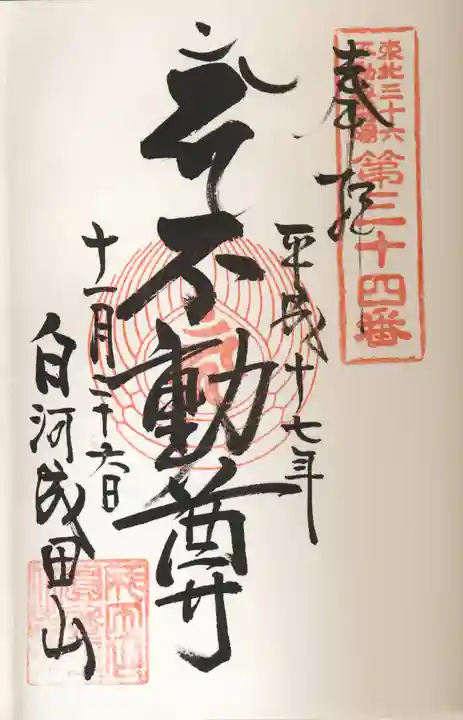 東北三十六
不動尊霊場
第三十四番
奉拝
平成十七年
不動尊
十一月二十六日
白河成田山